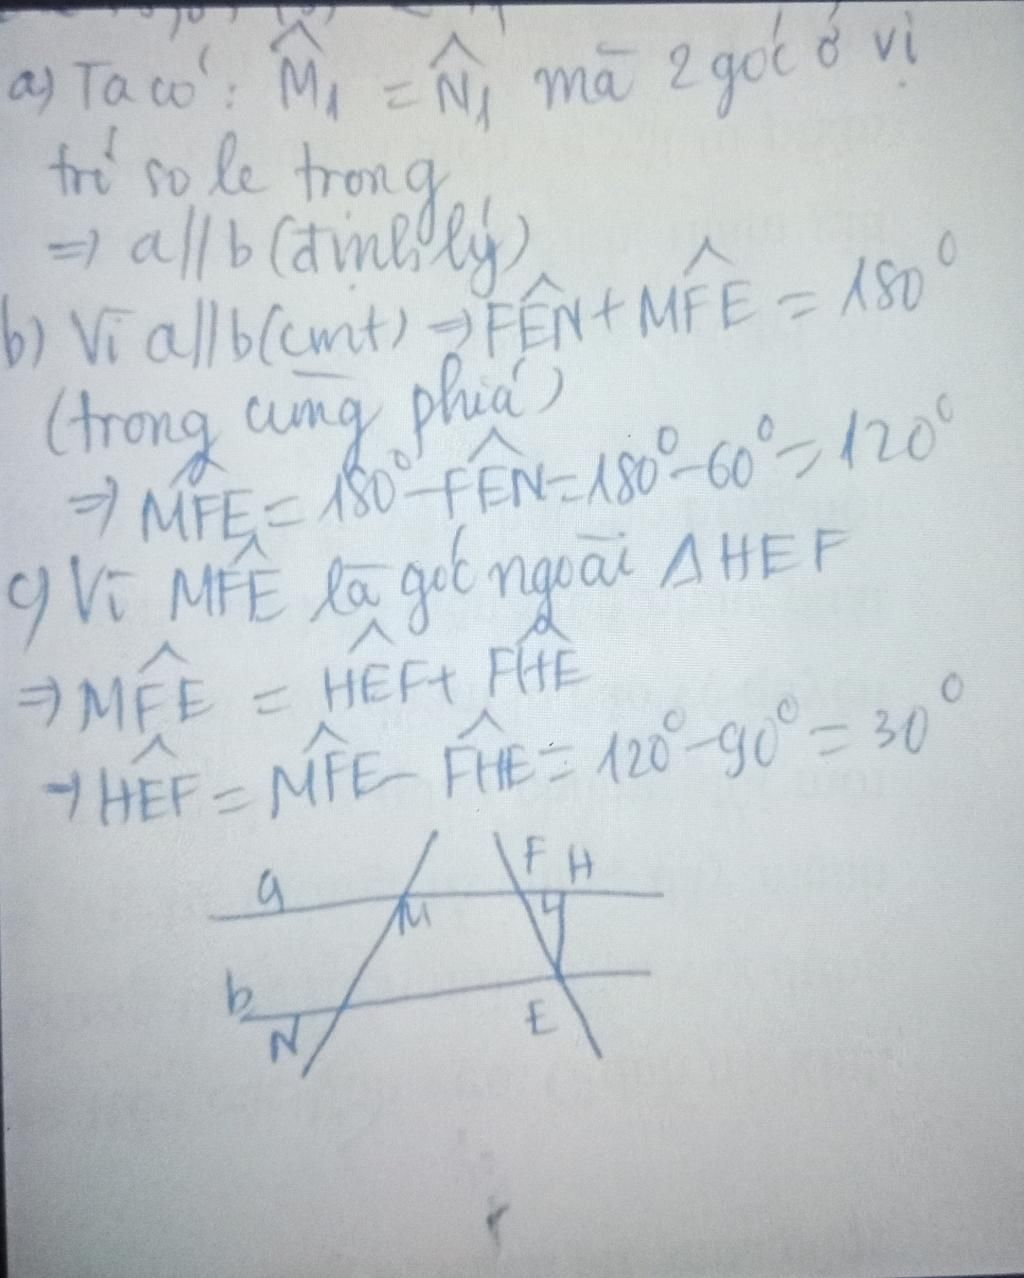 a) Ta có: M̂₁ = N̂₁ mà 2 góc ở vị
trí so le trong
⇒ a//b (định lý)
b) Vì a//b (cmt) ⇒ FÊN + MF̂E = 180°
(trong cùng phía)
⇒ MF̂E = 180° - FÊN = 180° - 60° = 120°
c) Vì MF̂E là góc ngoài ΔHEF
⇒ MF̂E = HÊF + FĤE
⇒ HÊF = MF̂E - FĤE = 120° - 90° = 30°
F H
a
M
b
E
N